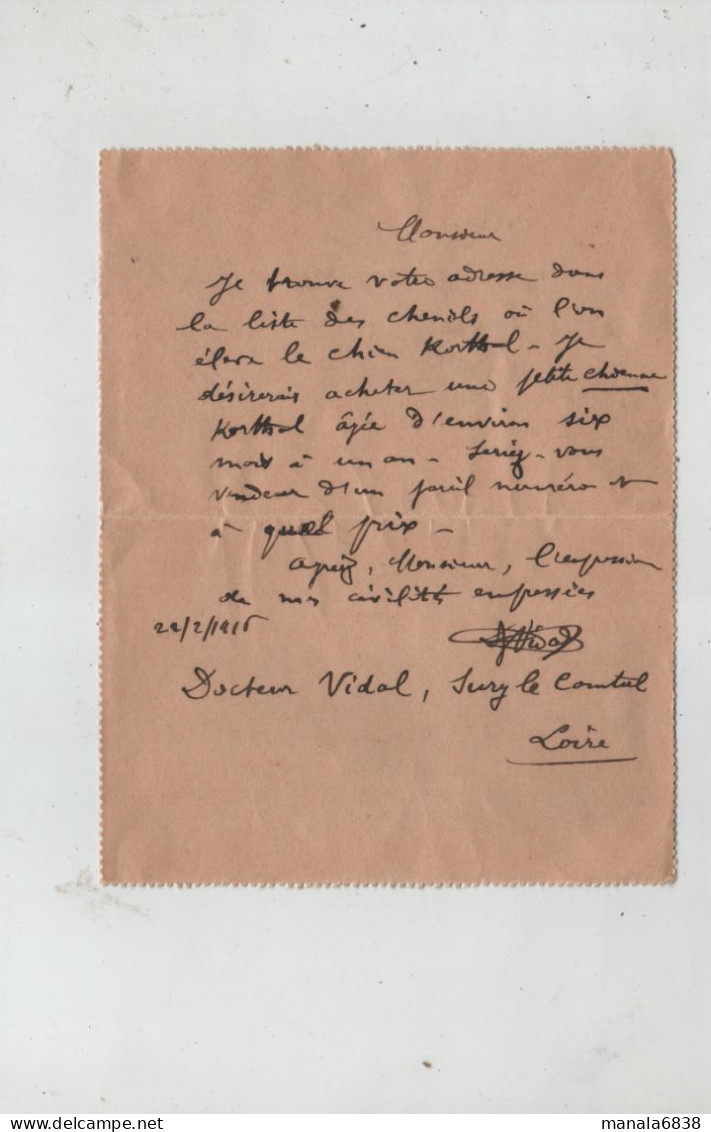 Monsieur
Je trouve votre adresse dans
la liste des chenils où l'on
élève le chien Korthal - Je
désirerais acheter une petite chienne
Korthal âgée d'environ six
mois à un an - Seriez-vous
vendeur d'un pareil numéro et
à quel prix -
Agréez, Monsieur, l'expression
de mes civilités empressées
22/2/1916
Vidal
Docteur Vidal, Sury le Comtal
Loire
delcampe.net
manala6838